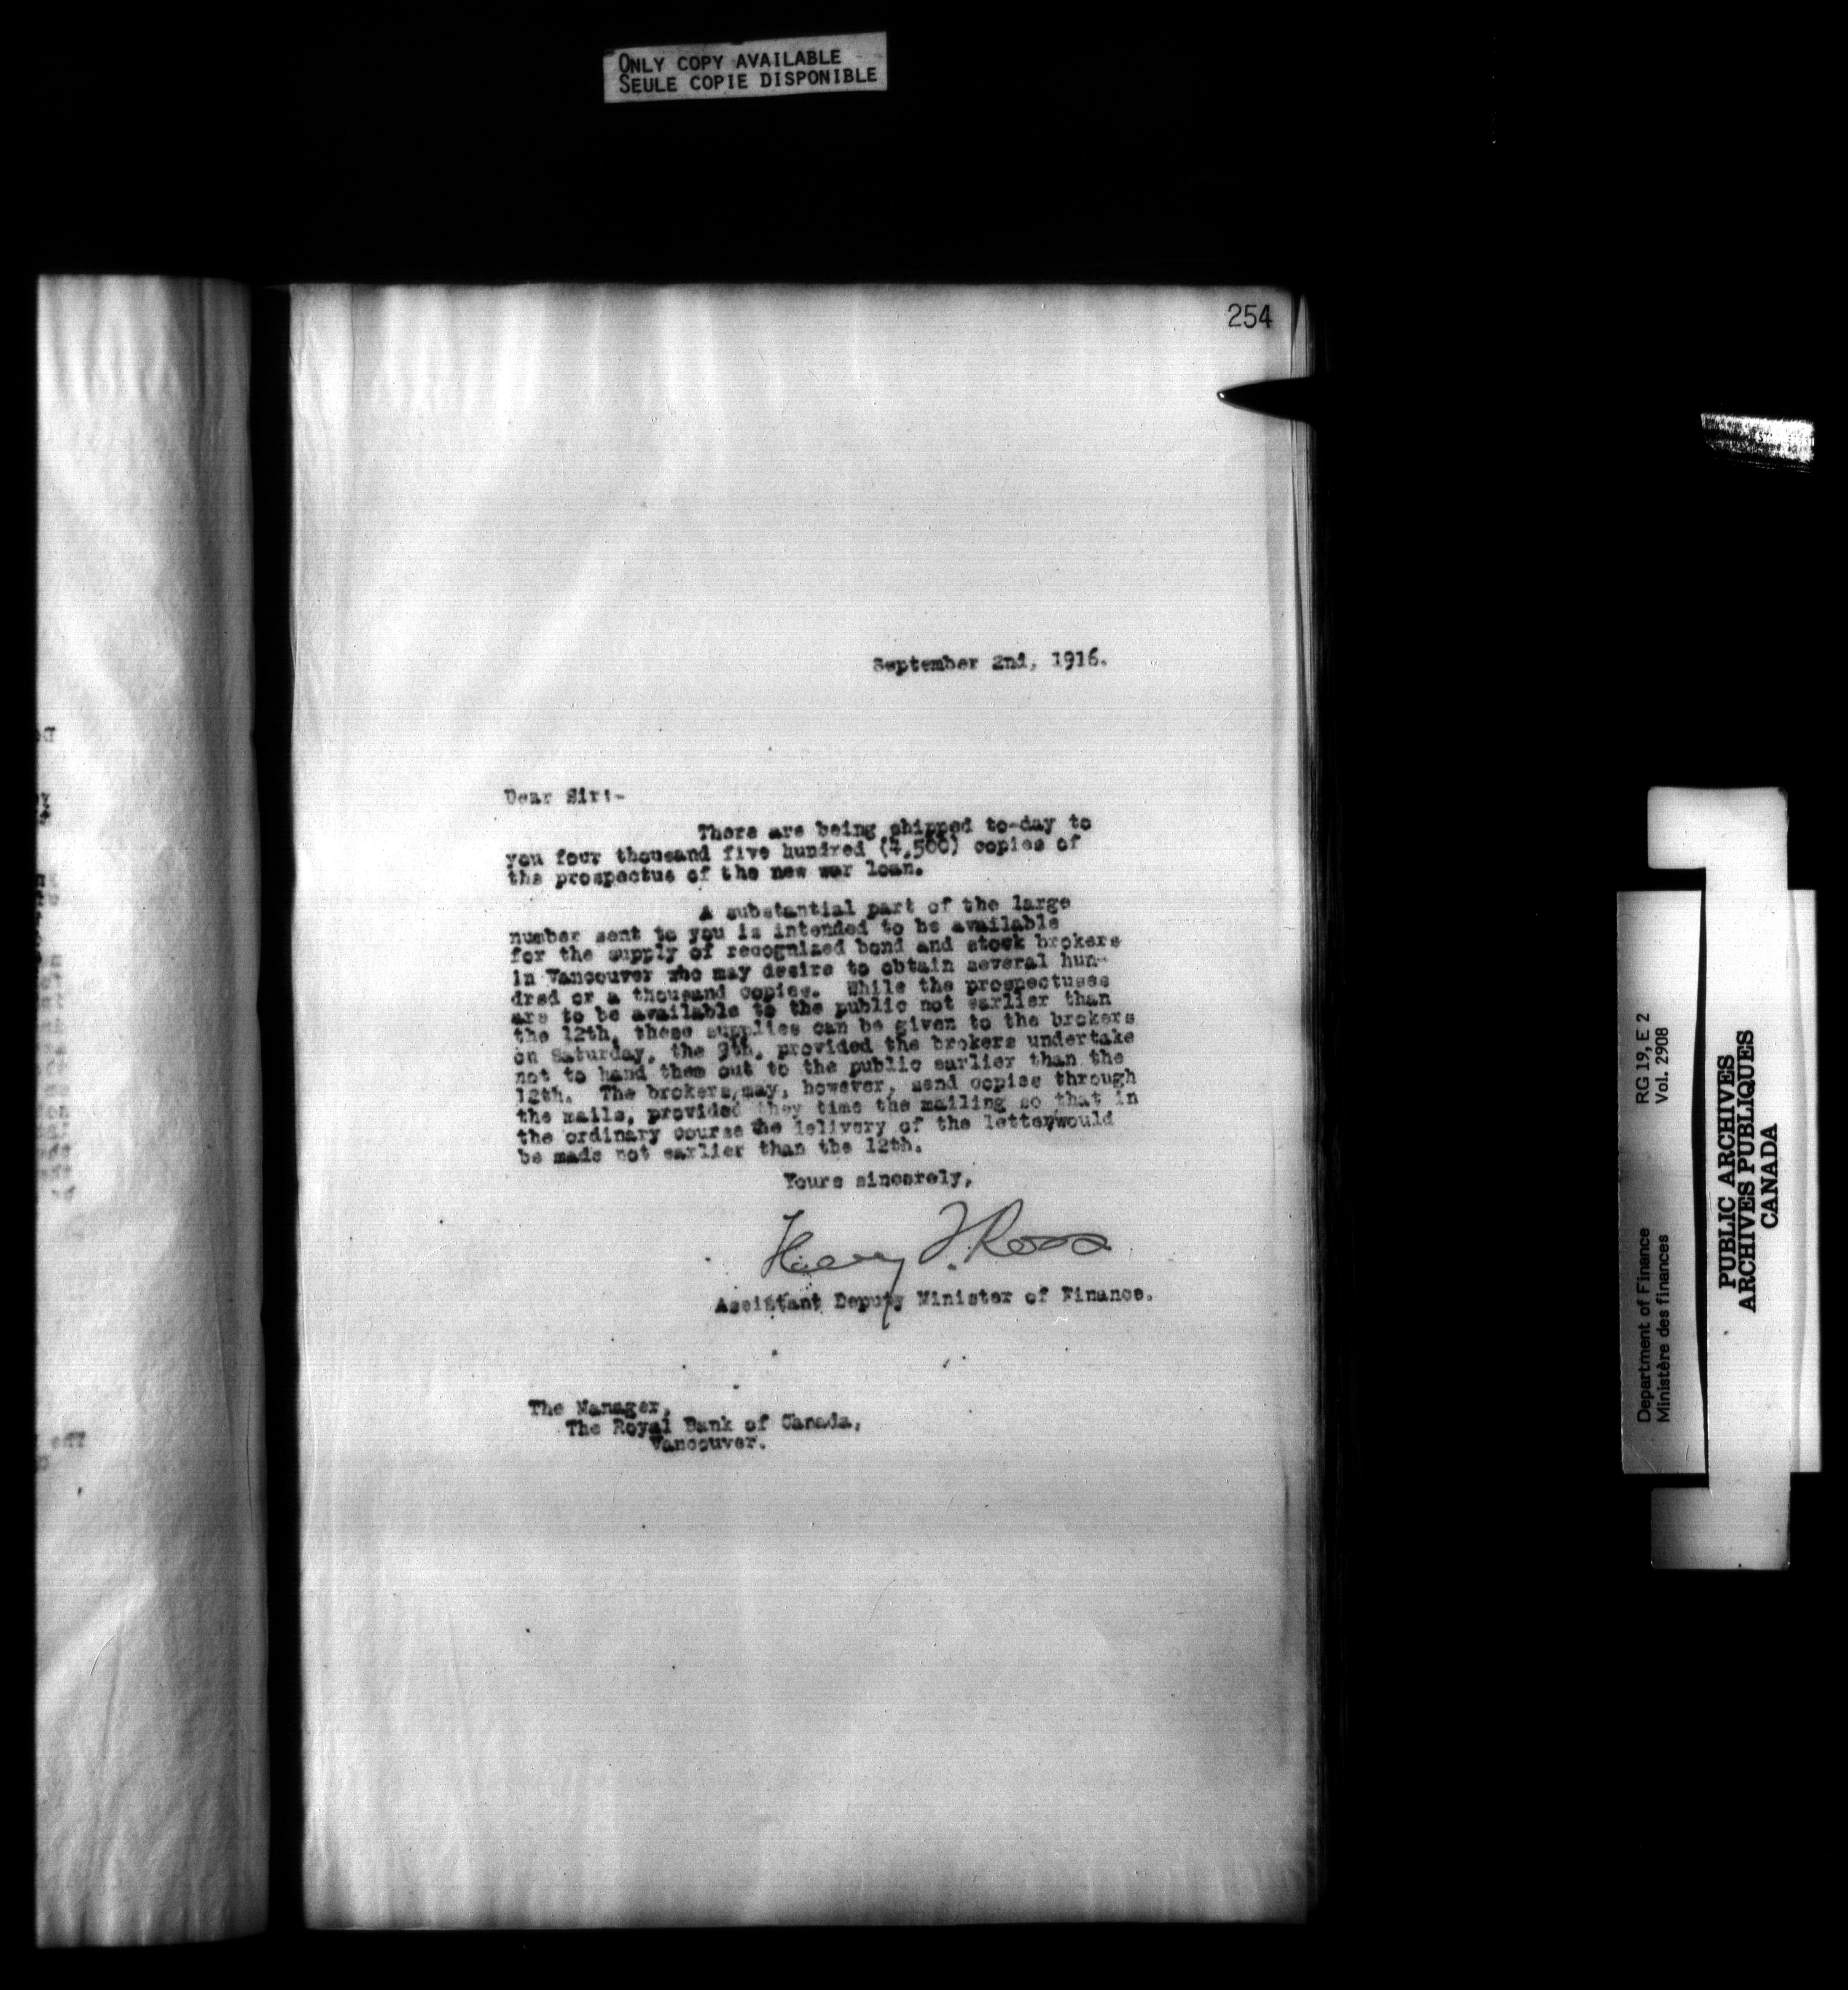 ONLY COPY AVAILABLE
SEULE COPIE DISPONIBLE
254
September 2nd, 1916.
Dear Sir:-
There are being shipped to-day to
you four thousand five hundred (4,500) copies of
the prospectus of the new war loan.
A substantial part of the large
number sent to you is intended to be available
for the supply of recognized bond and stock brokers
in Vancouver who may desire to obtain several hun-
dred or a thousand copies. While the prospectuses
are to be available to the public not earlier than
the 12th, these supplies can be given to the brokers
on Saturday, the 9th, provided the brokers undertake
not to hand them out to the public earlier than the
12th. The brokers, may, however, send copies through
the mails, provided they time the mailing so that in
the ordinary course the delivery of the letter would
be made not earlier than the 12th.
Yours sincerely,
Henry T. Ross
Assistant Deputy Minister of Finance.
The Manager,
The Royal Bank of Canada,
Vancouver.
Department of Finance RG 19, E 2
Ministère des finances Vol. 2908
PUBLIC ARCHIVES
ARCHIVES PUBLIQUES
CANADA